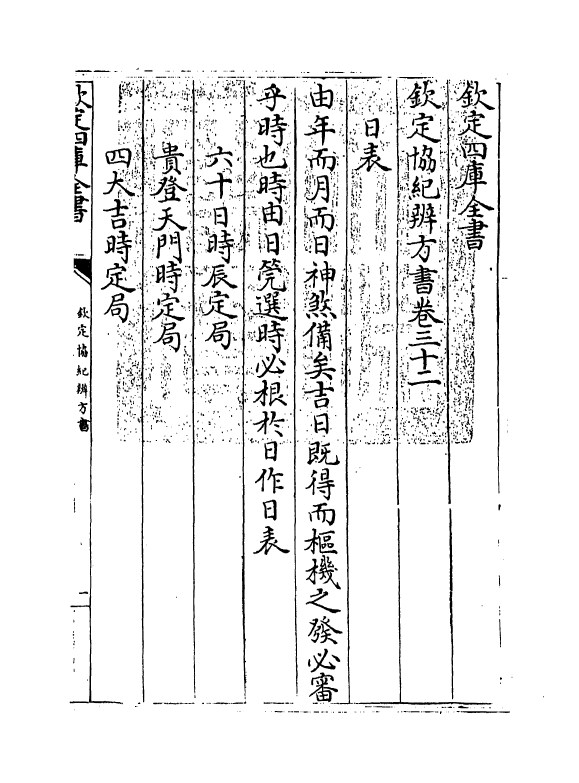 欽定四庫全書
欽定協紀辨方書卷三十二
日表
由年而月而日神煞備矣吉日既得而樞機之發必審
乎時也時由日筦選時必根於日作日表
六十日時辰定局
貴登天門時定局
四大吉時定局
欽定四庫全書
欽定協紀辨方書
一